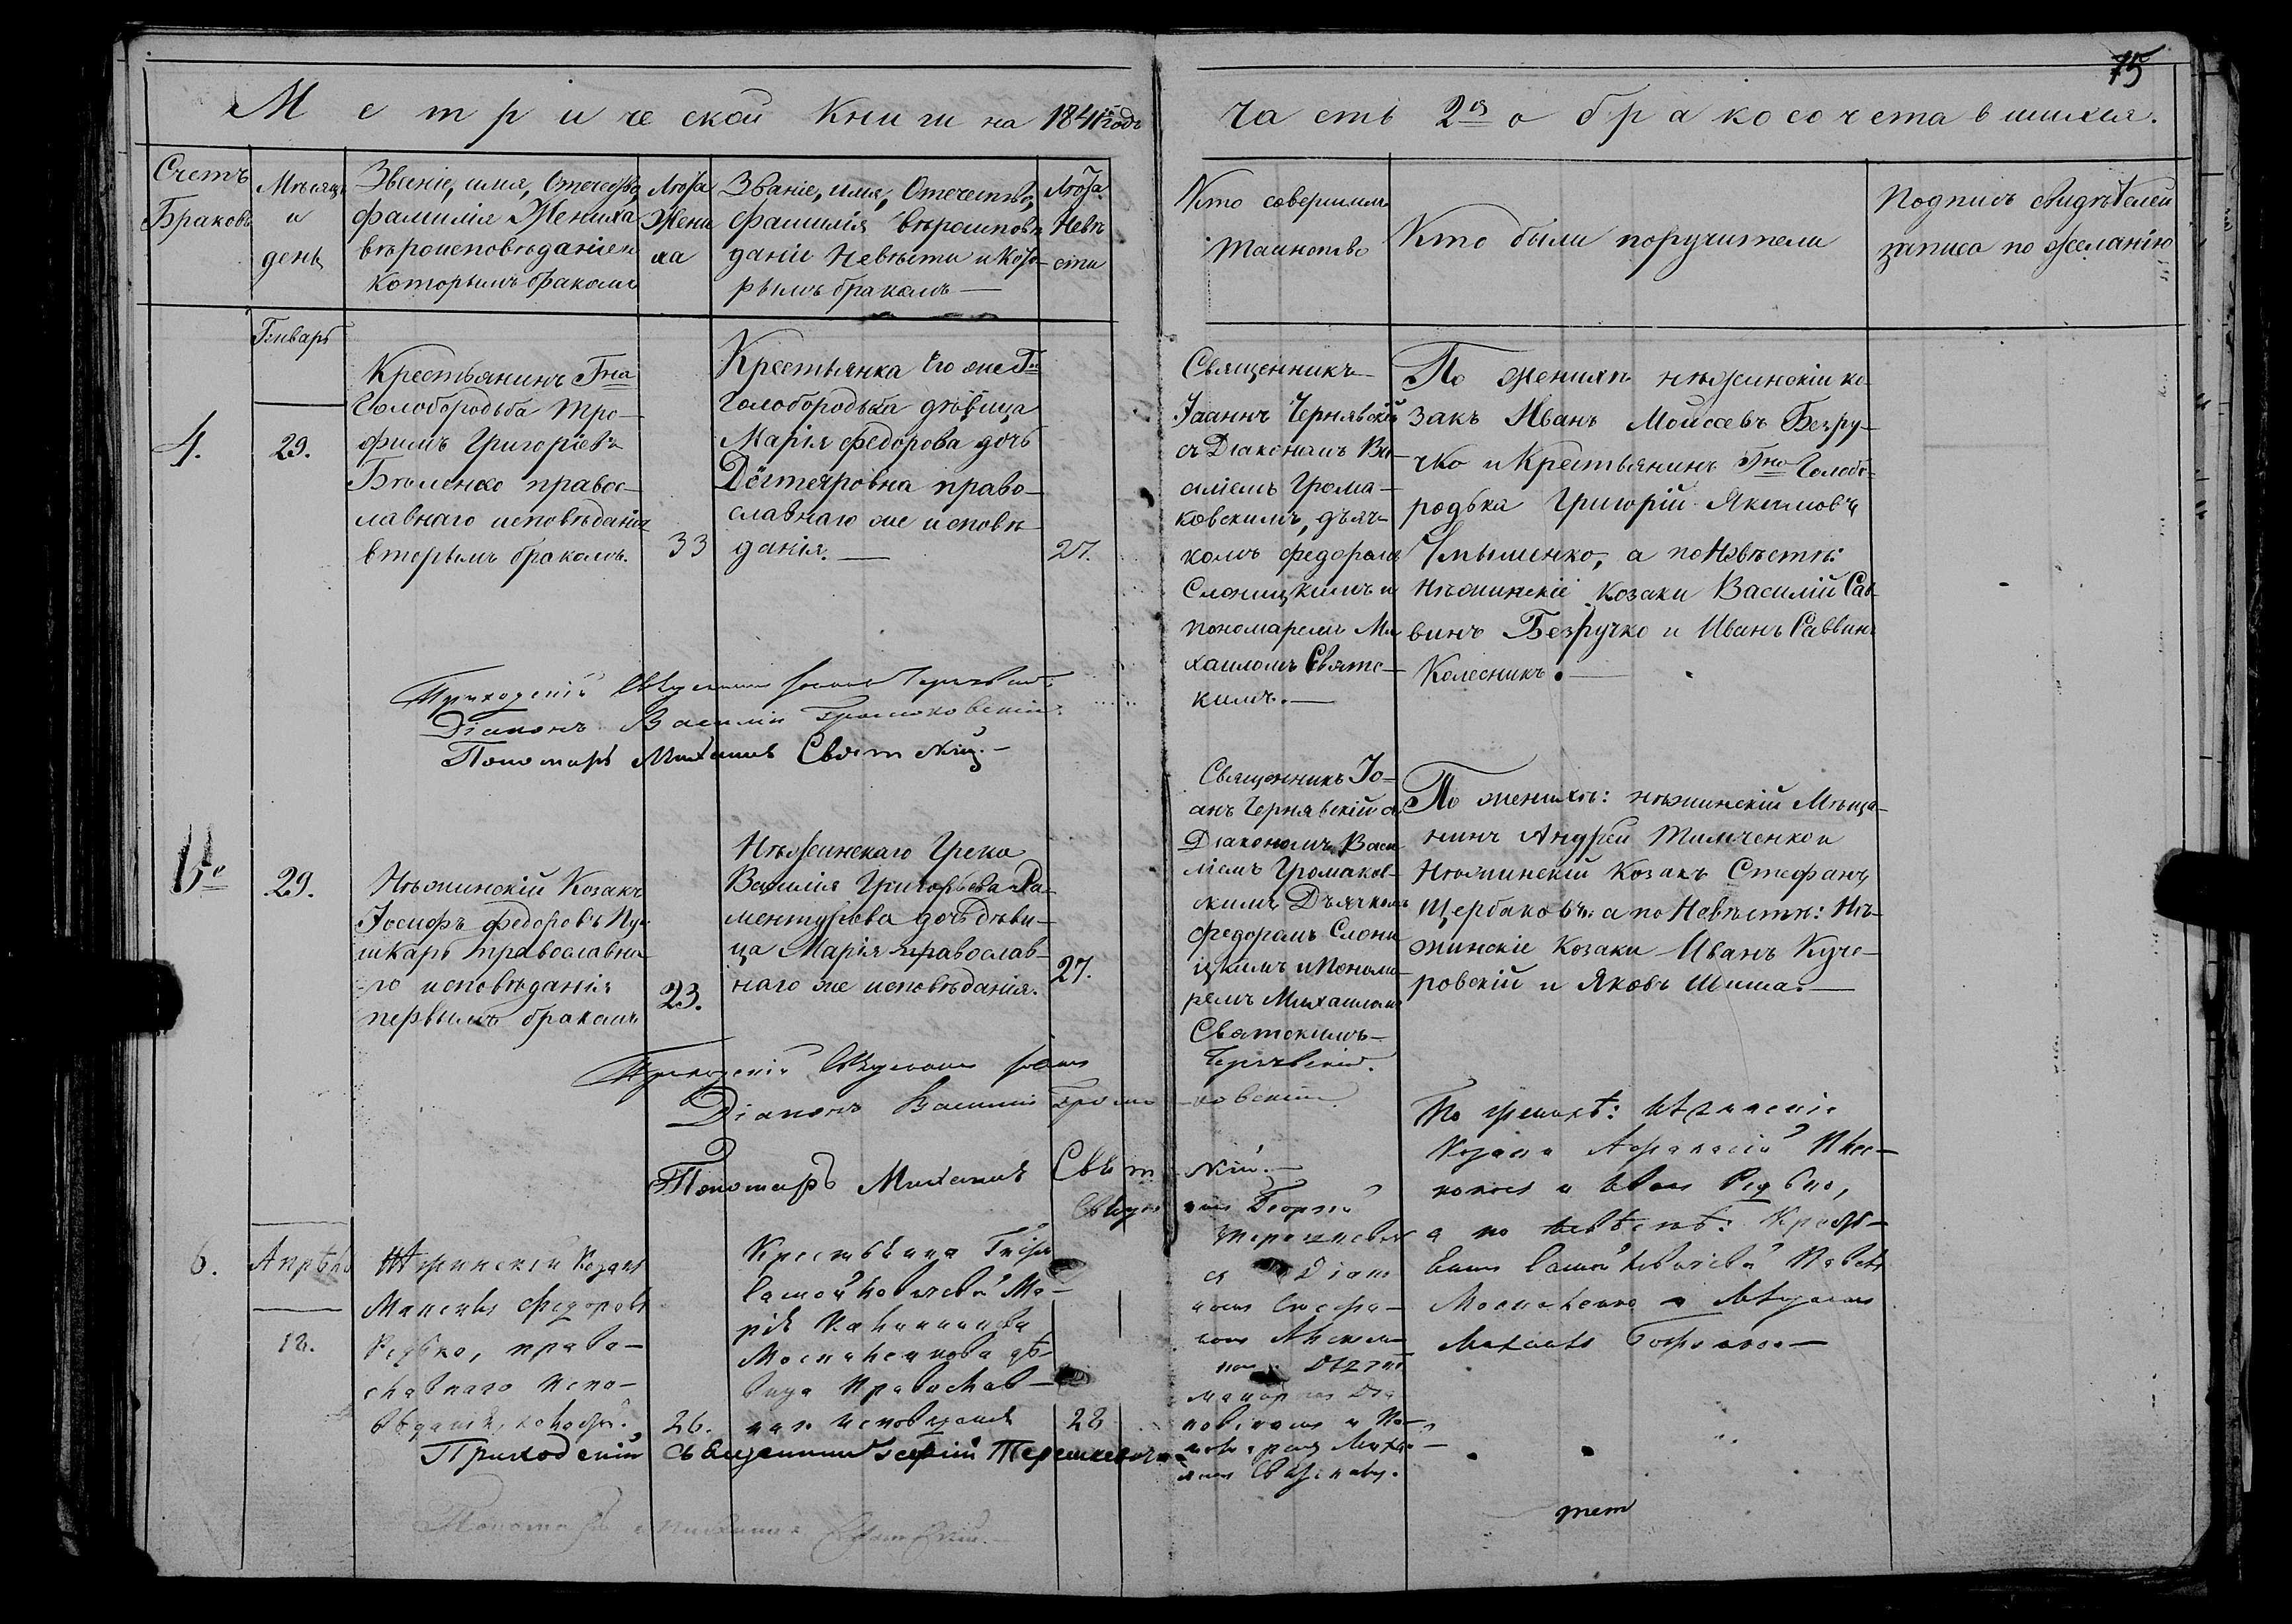 75
Метрической Книги на 1841 годъ
часть 2я о бракосочетавшихся.
Счетъ
Браковъ
Мѣсяцъ
и
день
Званіе, имя, Отечество,
фамилія Жениха
вѣроисповѣданіе и
которымъ бракомъ
Лѣта
Жени
ха
Званіе, имя, Отечество,
фамилія вѣроисповѣ
даніе Невѣсты и Кото-
рымъ бракомъ —
Лѣта
Невѣ
сты
Кто совершилъ
таинство
Кто были поручители
Подпись свидѣтелей
записа по желанію
Генварь
4.
29.
Крестьянинъ Гна
Голобородька Тро-
фимъ Григоріевъ
Бѣленко правос-
лавнаго исповѣданія
вторымъ бракомъ.
33
Крестьянка Его же Гна
Голобородька дѣвица
Марія Федорова дочь
Дегтяровна право-
славнаго же исповѣ
данія. —
27.
Священникъ
Іоаннъ Чернявскій
съ Діакономъ Ва-
силіемъ Грома-
ковскимъ, дьяч-
комъ Федоромъ
Слоницкимъ и
пономаремъ Ми
хаиломъ Святс-
кимъ. —
По женихѣ нѣжинскій ко-
закъ Иванъ Моисеевъ Безру-
чко и Крестьянинъ Гна Голобо-
родька Григорій Якимовъ
а по Невѣстѣ:
Нѣжинскіе Козаки Василій Сав-
винъ Безручко и Иванъ Саввинъ
Колесникъ. —
Приходскій Священникъ Іоаннъ Чернявскій
Діаконъ Василій Громоковскій
Пономарь Михаилъ Святскій. —
5е
29.
Нѣжинскій Козакъ
Іосифъ Федоровъ Пу-
шкарь православна
го исповѣданія
первымъ бракомъ
23.
Нѣжинскаго Грека
Василія Григорьева
дочь дѣви-
ца Марія православ-
наго же исповѣданія.
27.
Священникъ Іо-
анъ Чернявскій съ
Діакономъ Васи
ліемъ Громаков-
скимъ Дьячкомъ
Федоромъ Слони
цкимъ и Понома-
ремъ Михаиломъ
Святскимъ —
По женихѣ: нѣжинскій Мѣща-
нинъ Андрей Тимченко и
Нѣжинскій Козакъ Стефанъ
Щербаковъ: а по Невѣстѣ: Нѣ-
жинскіе Козаки Иванъ Куче-
ровскій и Яковъ Шиша. —
Приходскій Священникъ Іоаннъ Чернявскій.
Діаконъ Василій Громоковскій
Пономарь Михаилъ Святскій. —
6.
Апрѣль
18.
Нѣжинскій Козакъ
Федоровъ
Редько, право-
славнаго испо-
вѣданія,
26.
Крестьянка
Ма-
рія
дѣ-
вица Православ-
наго исповѣданія
22
Священ
никъ Георгій
Терешкевичъ
съ Діако
номъ
и По-
номаремъ Миха-
иломъ
По женихѣ: Нѣжинскіе
Козаки Афанасій
и Иванъ Редько,
а по невѣстѣ: Крестья-
Приходскій Священникъ Терешкевичъ
Пономарь Михаилъ Святскій. —